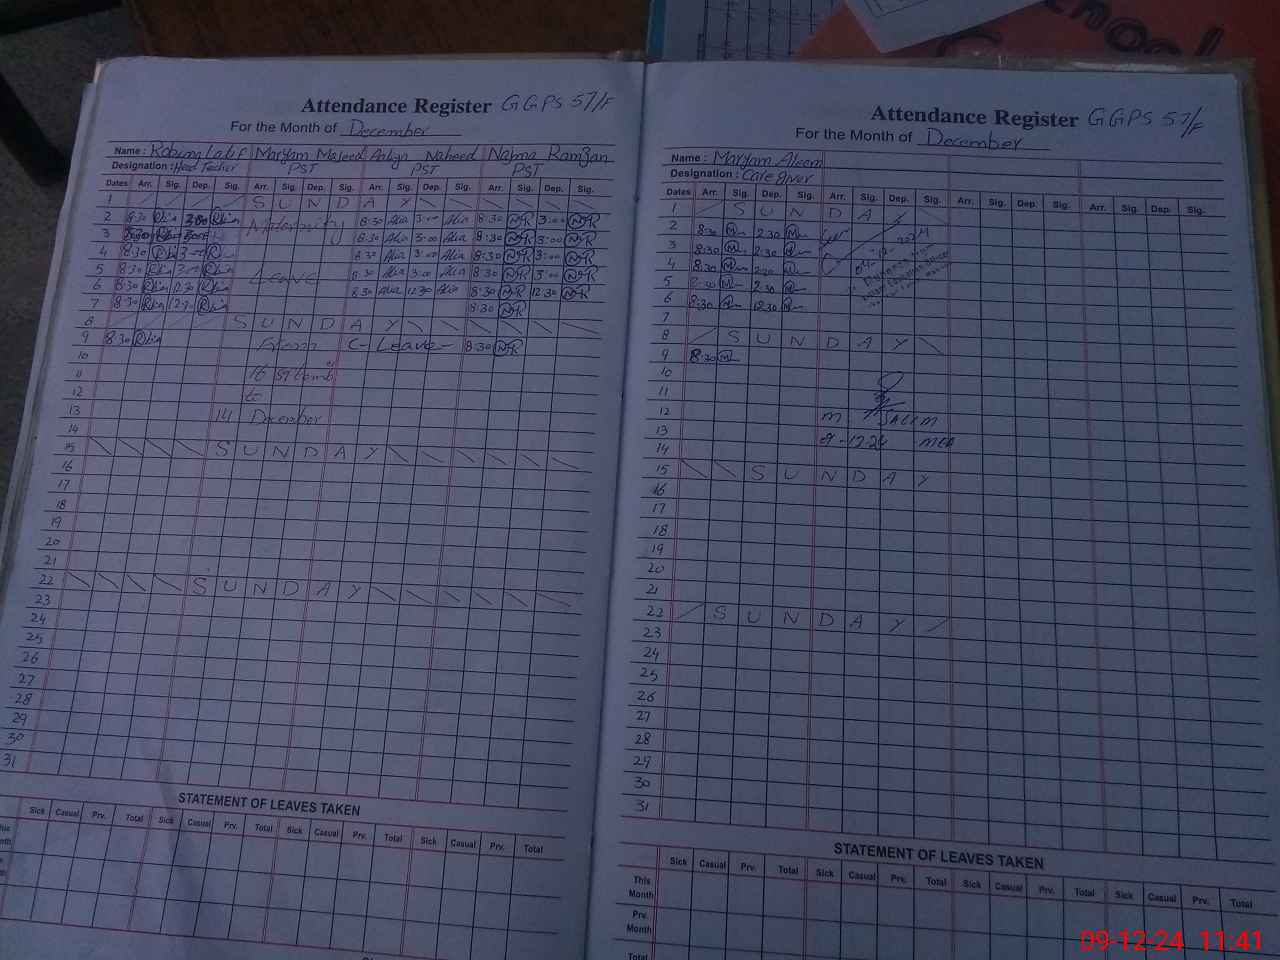 School
Attendance Register GGPS 57/F
For the Month of December
Name : Robina Latif Maryam Majeed Naheed Najma Ramzan
Designation : Head Techer PST PST PST
Dates Arr. Sig. Dep. Sig. Arr. Sig. Dep. Sig. Arr. Sig. Dep. Sig. Arr. Sig. Dep. Sig.
1 S U N D A Y
2 8:30 3:00 Maternity 8:30 Alia 3:00 Alia 8:30 NR 3:00 NR
3 8:30 3:00 8:30 Alia 3:00 Alia 8:30 NR 3:00 NR
4 8:30 3:00 8:30 Alia 3:00 Alia 8:30 NR 3:00 NR
5 8:30 3:00 Leave 8:30 Alia 3:00 Alia 8:30 NR 3:00 NR
6 8:30 12:30 8:30 Alia 12:30 Alia 8:30 NR 12:30 NR
7 8:30 12:30 8:30 NR
8 S U N D A Y
9 8:30 From C- Leave - 8:30 NR
10
11 16
12 to
13 14 December
14
15 S U N D A Y
16
17
18
19
20
21
22 S U N D A Y
23
24
25
26
27
28
29
30
31
STATEMENT OF LEAVES TAKEN
Sick Casual Prv. Total Sick Casual Prv. Total Sick Casual Prv. Total Sick Casual Prv. Total
Attendance Register GGPS 57/F
For the Month of December
Name : Maryam Aleem
Designation : Care giver
Dates Arr. Sig. Dep. Sig. Arr. Sig. Dep. Sig. Arr. Sig. Dep. Sig. Arr. Sig. Dep. Sig.
1 S U N D A Y
2 8:30 M 2:30 M
3 8:30 M 2:30 M
4 8:30 M 2:30 M
5 8:30 M 2:30 M
6 8:30 12:30
7
8 S U N D A Y
9 8:30 M
10
11
12 M SALIM
13 9-12-24 MEA
14
15 S U N D A Y
16
17
18
19
20
21
22 S U N D A Y
23
24
25
26
27
28
29
30
31
STATEMENT OF LEAVES TAKEN
Sick Casual Prv. Total Sick Casual Prv. Total Sick Casual Prv. Total Sick Casual Prv. Total
This Month
Prv. Month
Total
09-12-24 11:41